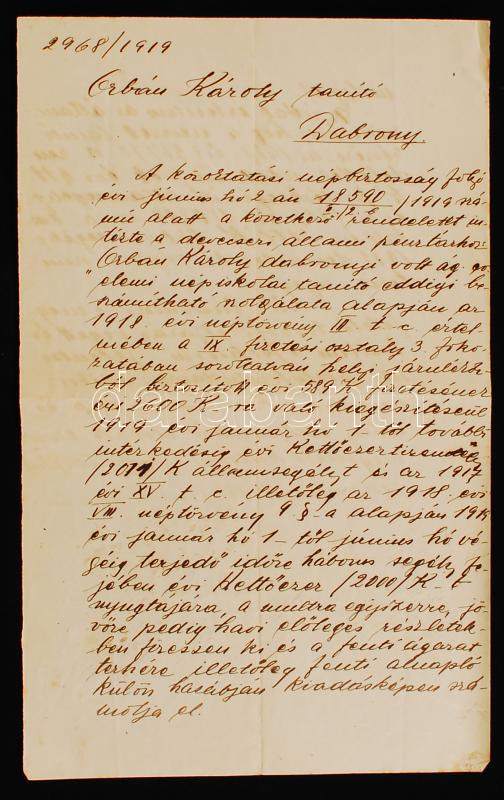 2968/1919
Orbán Károly tanító
Dabrony.
A közoktatási népbiztosság folyó
évi június hó 2 án 18590/1919 szá-
mú alatt a következő rendeletet in-
tézte a devecseri állami pénztárhoz:
"Orbán Károly dabronyi volt ág. ev.
elemi népiskolai tanító eddigi be-
számítható szolgálata alapján az
1918. évi néptörvény III t. c. értel-
mében a IX. fizetési osztály 3. foko-
zatában soroltatván helyi
ből biztosított évi 589 K fizetésének
évi 2600 K ra való kiegészítéseül
1919. évi január hó 1-től további
intézkedésig évi
/2011/K államsegélyt és az 1917
évi XV. t. c. illetőleg az 1918. évi
VIII. néptörvény 9 §-a alapján 1919
évi január hó 1-től június hó vé-
géig terjedő időre háborus segély fe-
jében évi Kettőezer /2000/ K t
nyugtájára, a multra egyszerre, jö-
vőre pedig havi előleges részletek-
ben fizessen ki és a fenti ágazat
terhére illetőleg fenti alnapló
külön hasábján kiadásképen szá-
molja el.
darabanth